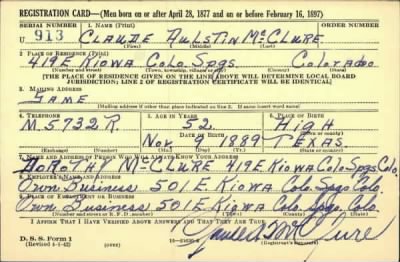 REGISTRATION CARD—(Men born on or after April 28, 1877 and on or before February 16, 1897)
SERIAL NUMBER 1. NAME (Print)
U 913 CLAUDE AULSTIN McCLURE
(First) (Middle) (Last)
2. PLACE OF RESIDENCE (Print)
419 E. KIOWA COLO. SPGS. COLORADO
(Number and street) (Town, township, village, or city) (County) (State)
[THE PLACE OF RESIDENCE GIVEN ON THE LINE ABOVE WILL DETERMINE LOCAL BOARD
JURISDICTION; LINE 2 OF REGISTRATION CERTIFICATE WILL BE IDENTICAL]
3. MAILING ADDRESS
SAME
[Mailing address if other than place indicated on line 2. If same insert word same]
4. TELEPHONE 5. AGE IN YEARS 6. PLACE OF BIRTH
M. 5732 R. 52 HIGH
DATE OF BIRTH
NOV. 1889 TEXAS
(Exchange) (Number) (Mo.) (Day) (Yr.) (State or country)
7. NAME AND ADDRESS OF PERSON WHO WILL ALWAYS KNOW YOUR ADDRESS
DOROTHY McCLURE 419 E. KIOWA COLO. SPGS. COLO.
8. EMPLOYER'S NAME AND ADDRESS
OWN BUSINESS 501 E. KIOWA COLO. SPGS. COLO.
9. PLACE OF EMPLOYMENT OR BUSINESS
OWN BUSINESS 501 E. KIOWA COLO. SPGS. COLO.
(Number and street or R. F. D. number) (Town) (County) (State)
I AFFIRM THAT I HAVE VERIFIED ABOVE ANSWERS AND THAT THEY ARE TRUE.
D. S. S. Form 1
(Revised 4-1-42) (over)
Claude A McClure
(Registrant's signature)